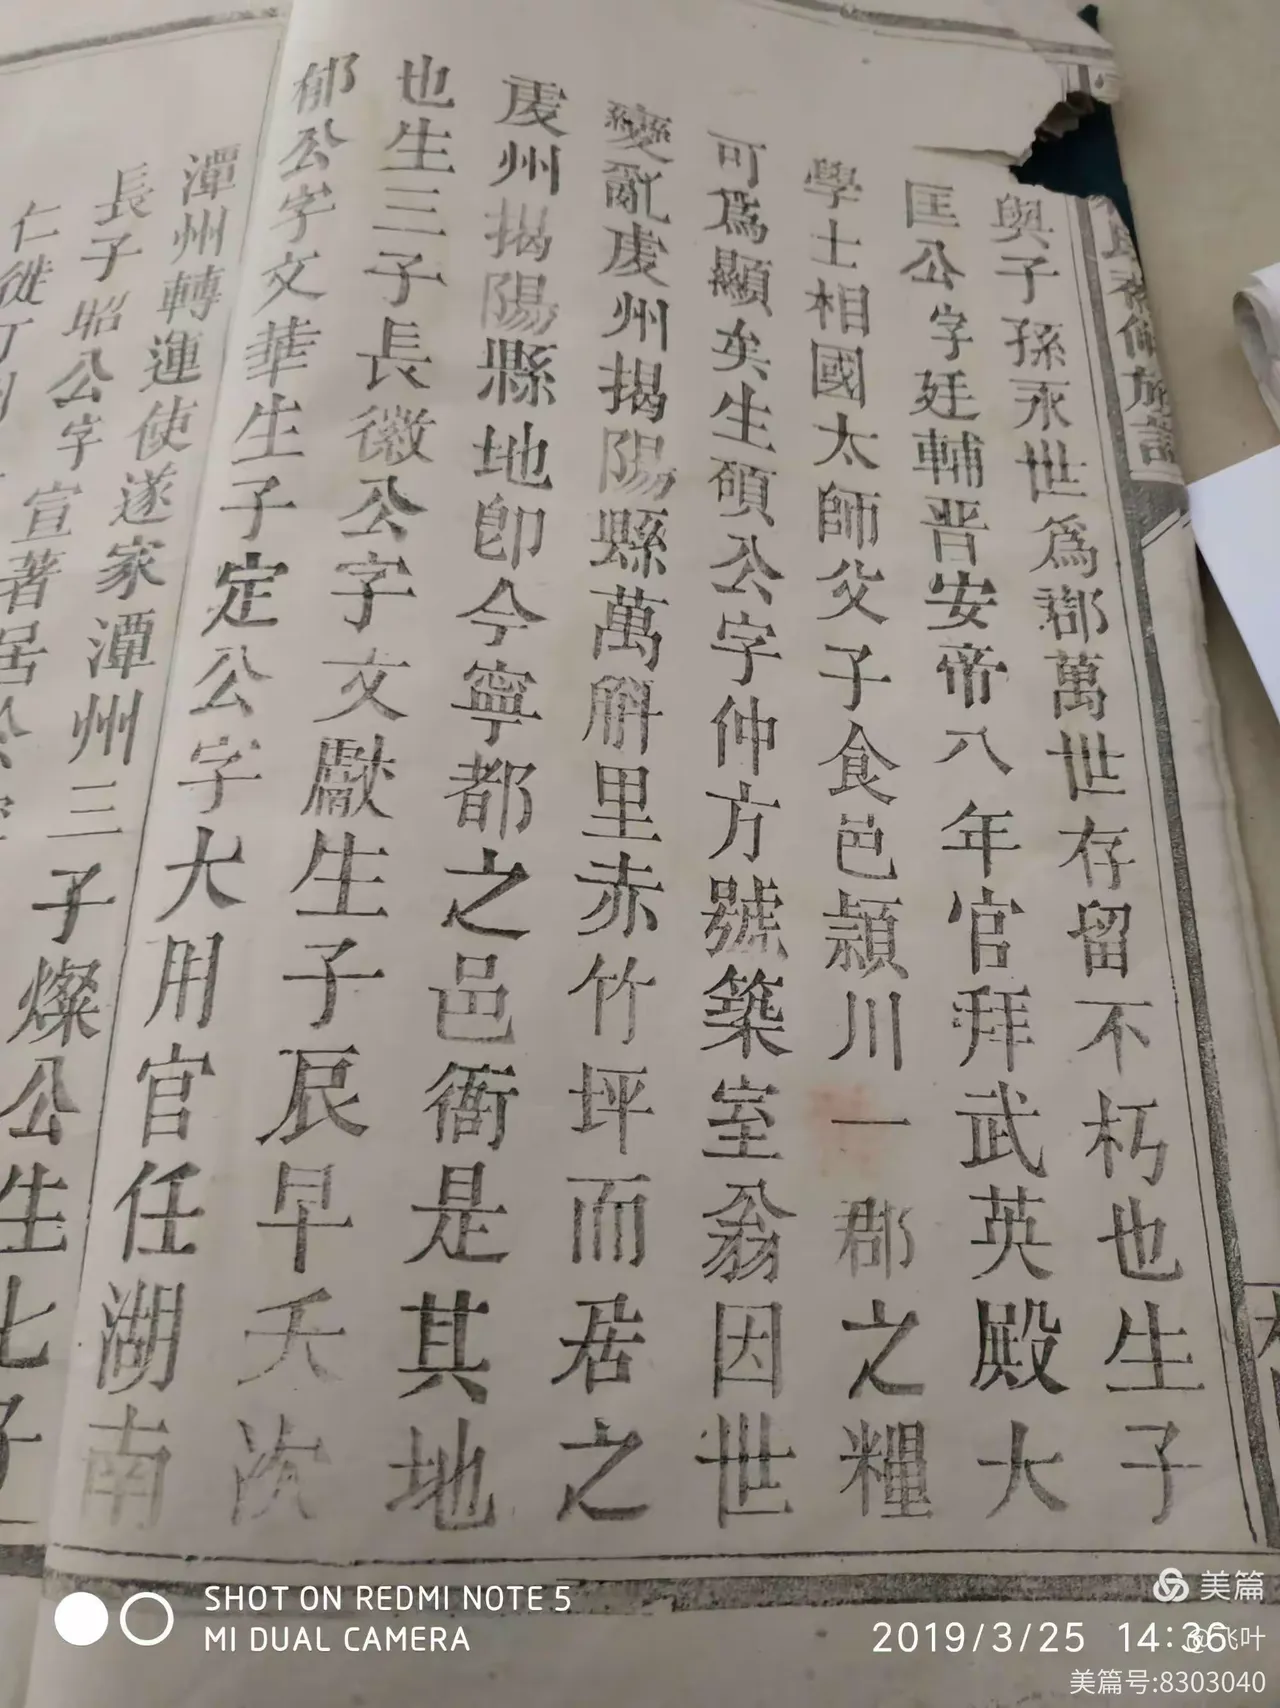 與子孫永世爲鄰萬世存留不朽也生子
匡公字廷輔晋安帝八年官拜武英殿大
學士相國太師父子食邑潁川一郡之糧
可爲顯矣生碩公字仲方號築室翁因世
變亂虔州揭陽縣萬斛里赤竹坪而居之
虔州揭陽縣地卽今寧都之邑衙是其地
也生三子長徽公字文獻生子辰早夭次
郁公字文華生子定公字大用官任湖南
潭州轉運使遂家潭州三子燦公生七子
長子昭公字宣著居於
仁徙汀州
SHOT ON REDMI NOTE 5
MI DUAL CAMERA
美篇
2019/3/25 14:36
@飞叶
美篇号:8303040